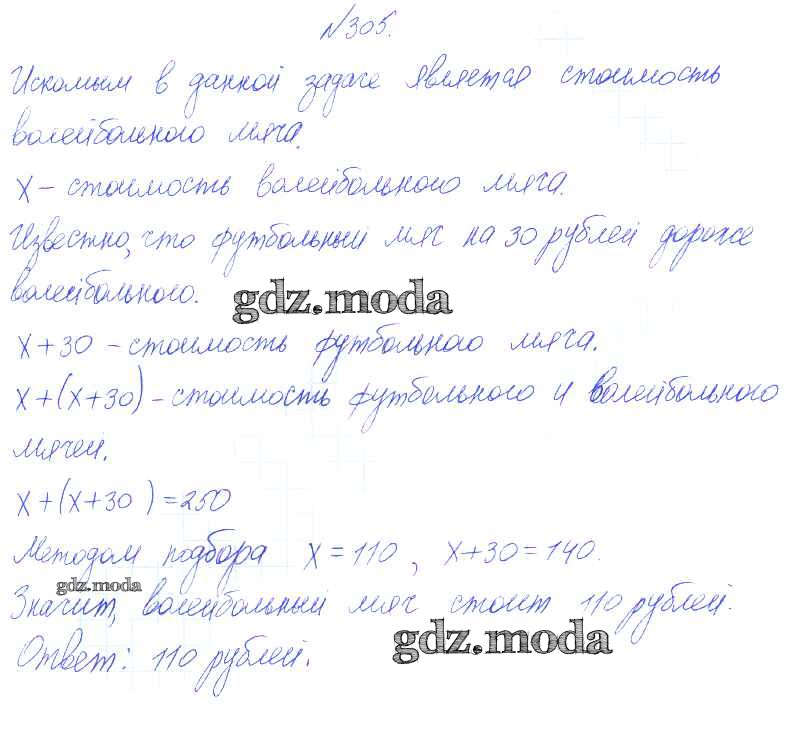 №305.
Искомым в данной задаче является стоимость
волейбольного мяча.
x – стоимость волейбольного мяча.
Известно, что футбольный мяч на 30 рублей дороже
волейбольного.
gdz.moda
x+30 – стоимость футбольного мяча.
x+(x+30) – стоимость футбольного и волейбольного
мячей.
x+(x+30)=250
Методом подбора x=110, x+30=140.
gdz.moda
Значит, волейбольный мяч стоит 110 рублей.
Ответ: 110 рублей.
gdz.moda